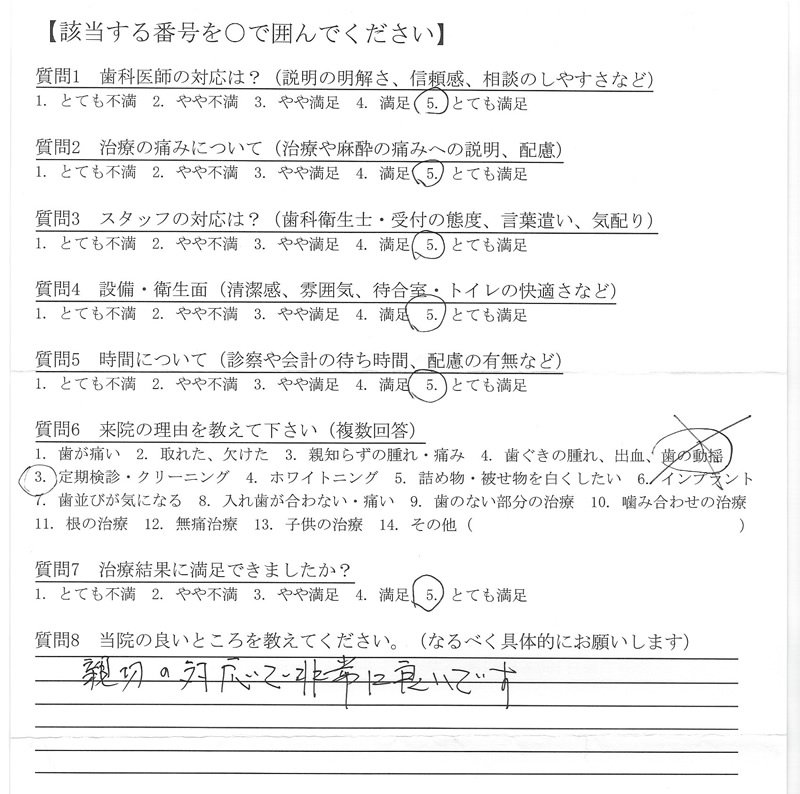 【該当する番号を○で囲んでください】
質問1 歯科医師の対応は？（説明の明解さ、信頼感、相談のしやすさなど）
1. とても不満 2. やや不満 3. やや満足 4. 満足 5. とても満足
質問2 治療の痛みについて（治療や麻酔の痛みへの説明、配慮）
1. とても不満 2. やや不満 3. やや満足 4. 満足 5. とても満足
質問3 スタッフの対応は？（歯科衛生士・受付の態度、言葉遣い、気配り）
1. とても不満 2. やや不満 3. やや満足 4. 満足 5. とても満足
質問4 設備・衛生面（清潔感、雰囲気、待合室・トイレの快適さなど）
1. とても不満 2. やや不満 3. やや満足 4. 満足 5. とても満足
質問5 時間について（診察や会計の待ち時間、配慮の有無など）
1. とても不満 2. やや不満 3. やや満足 4. 満足 5. とても満足
質問6 来院の理由を教えて下さい（複数回答）
1. 歯が痛い 2. 取れた、欠けた 3. 親知らずの腫れ・痛み 4. 歯ぐきの腫れ、出血、歯の動揺
3. 定期検診・クリーニング 4. ホワイトニング 5. 詰め物・被せ物を白くしたい 6. インプラント
7. 歯並びが気になる 8. 入れ歯が合わない・痛い 9. 歯のない部分の治療 10. 噛み合わせの治療
11. 根の治療 12. 無痛治療 13. 子供の治療 14. その他（ ）
質問7 治療結果に満足できましたか？
1. とても不満 2. やや不満 3. やや満足 4. 満足 5. とても満足
質問8 当院の良いところを教えてください。（なるべく具体的にお願いします）
親切の対応いで非常に良いです